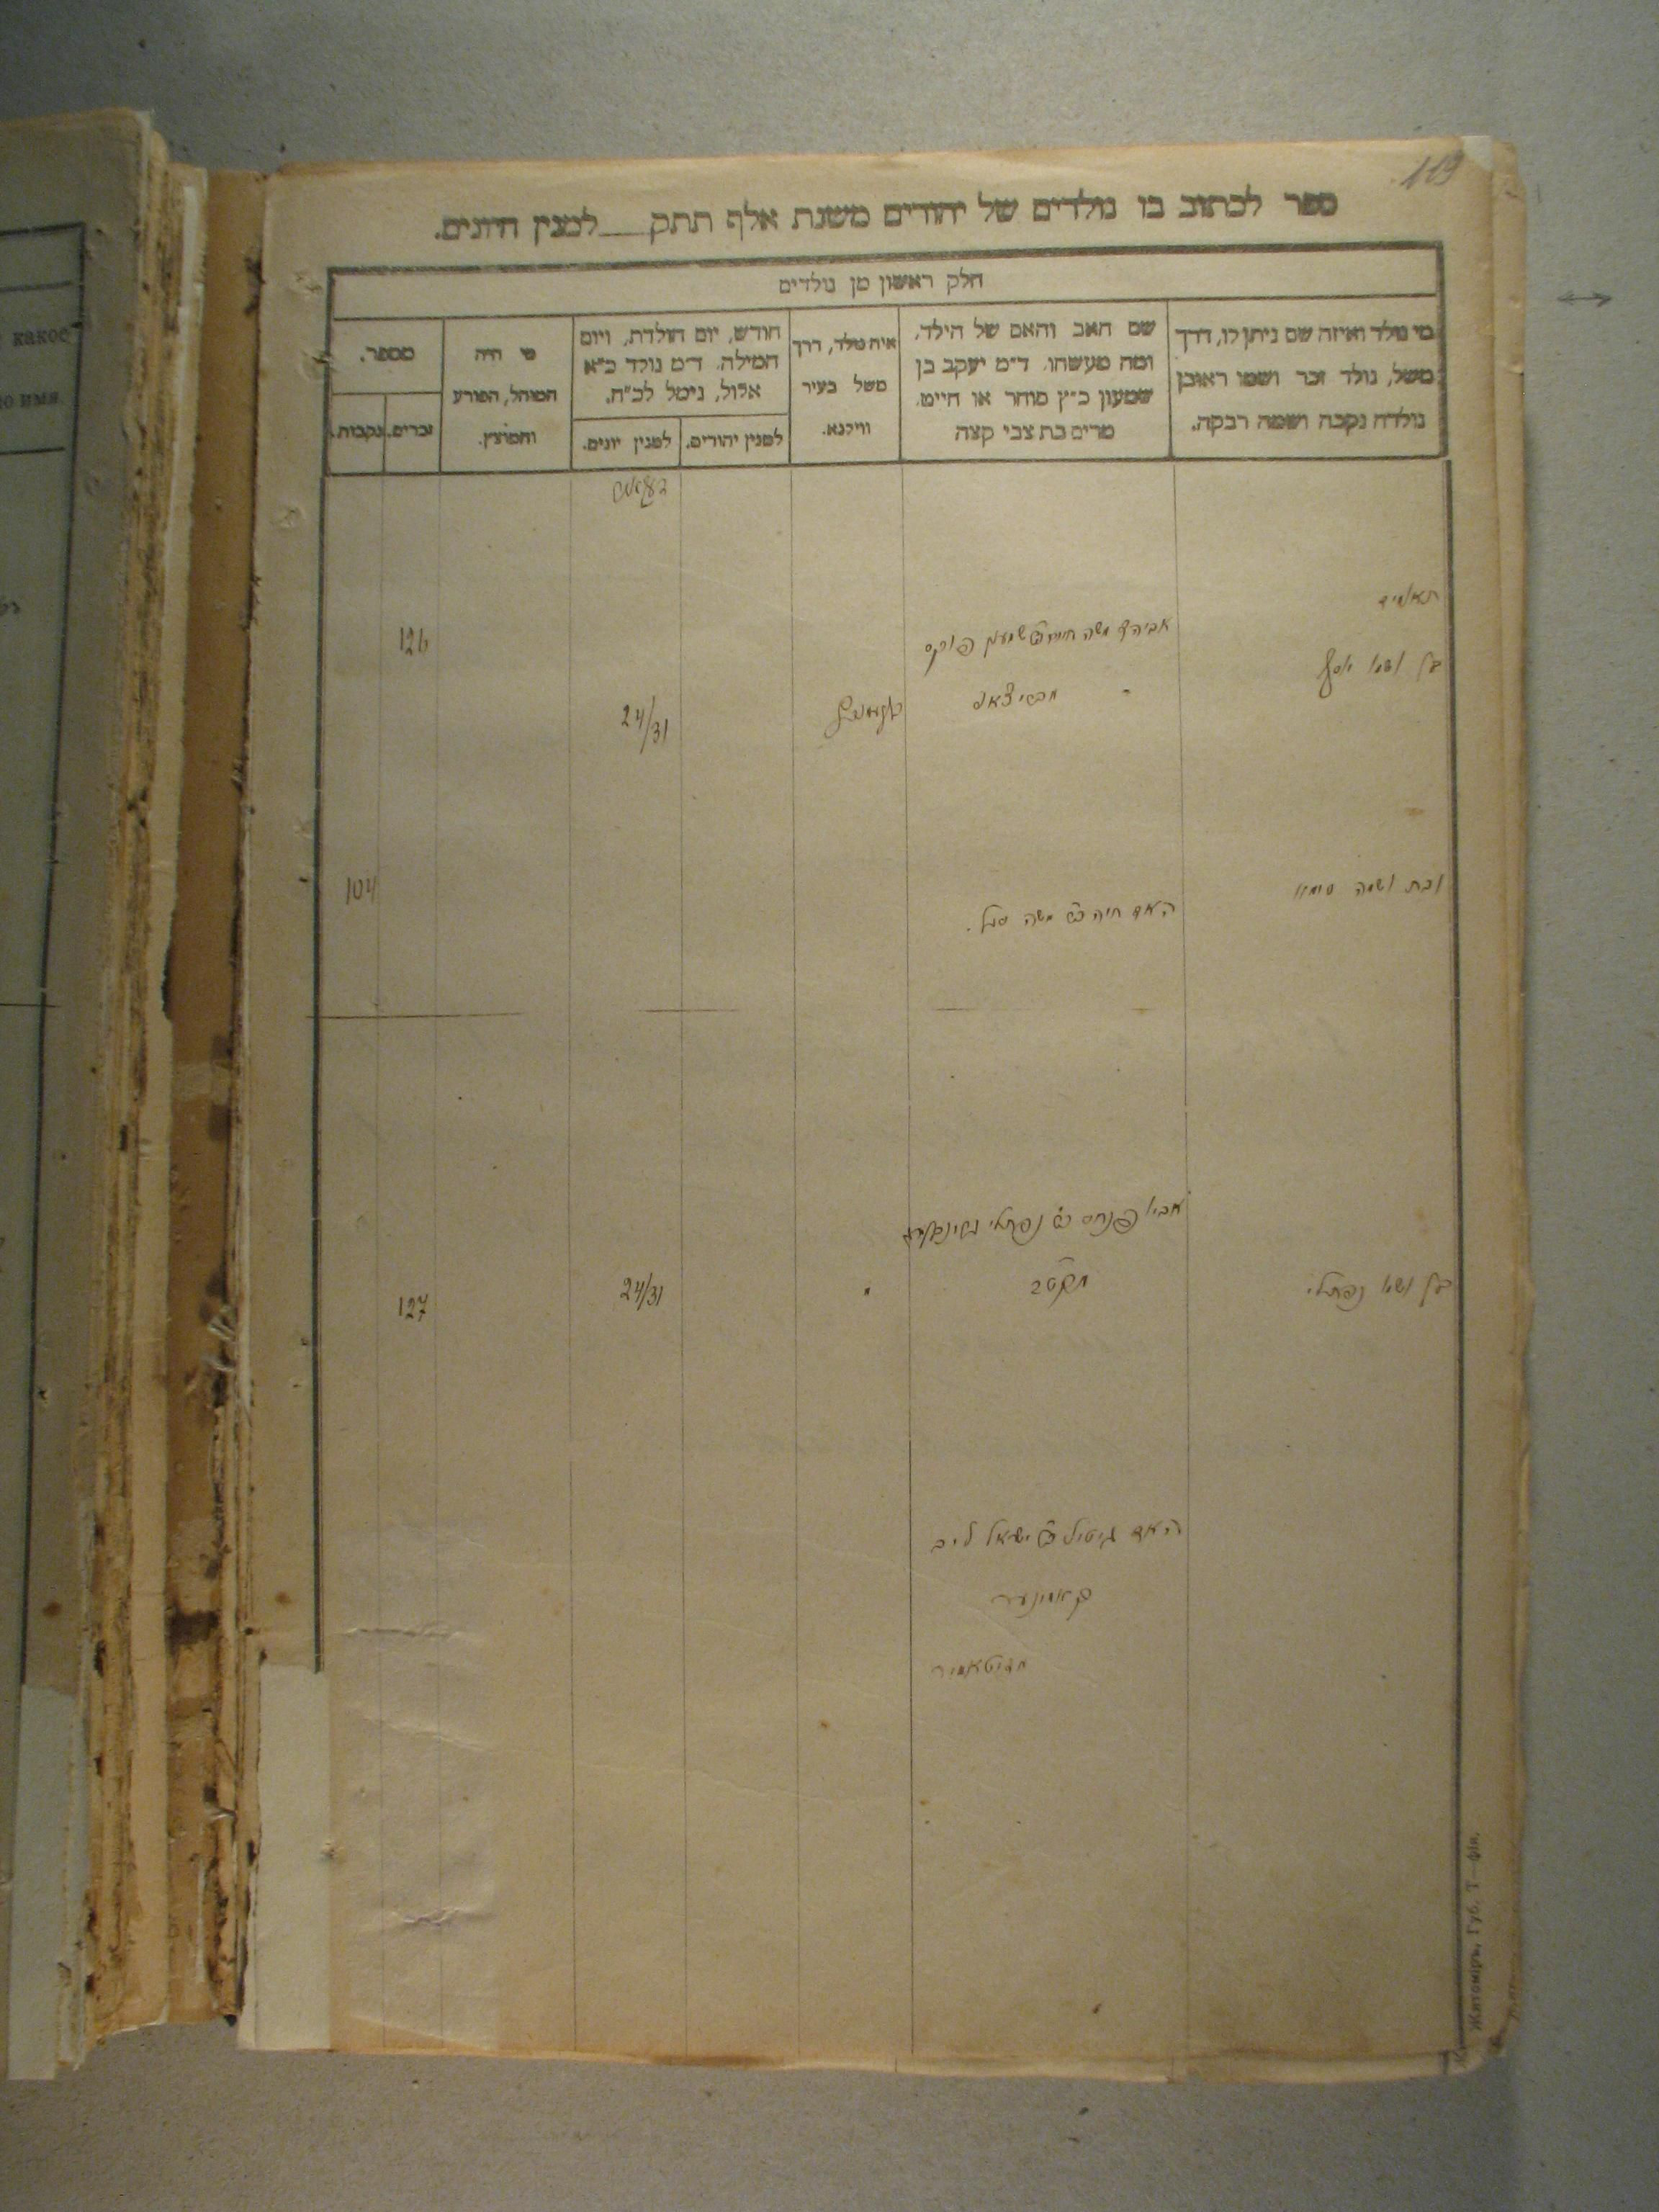 119
ספר לכתוב בו נולדים של יהודים משנת אלף תתק___למנין היונים.
חלק ראשון מן נולדים
מי מלד ואיזה שם ניתן לו, דרך
משל, נולד זכר ושמו ראובן
נולדה נקבה ושמה רבקה.
שם האב והאם של הילד,
ומה מעשהו. ד״מ יעקב בן
שמעון כ״ץ סוחר או חייט,
מרים בת צבי קצה
איה מלד, דרך
משל בעיר
ווילנא.
חודש, יום הולדת, ויום
המילה. ד״מ נולד כ״א
אלול, נימל לכ״ח.
למנין יהודים.
למנין יונים.
מי היה
המוהל, הפורע
והמוצץ.
מספר.
זכרים.
נקבות.
126
בן ושמו יוסף
אביהם משה חיים שמעון פוקס
24/31
104
ובת ושמה סימא
האם חיה בת משה סגל.
127
24/31
בן ושמו נפתלי.
אביו פנחס נפתלי
האם גיטיל ישראל ליב
מזיטאמיר
Житомиръ, Губ. Т—фія.
какое
имя